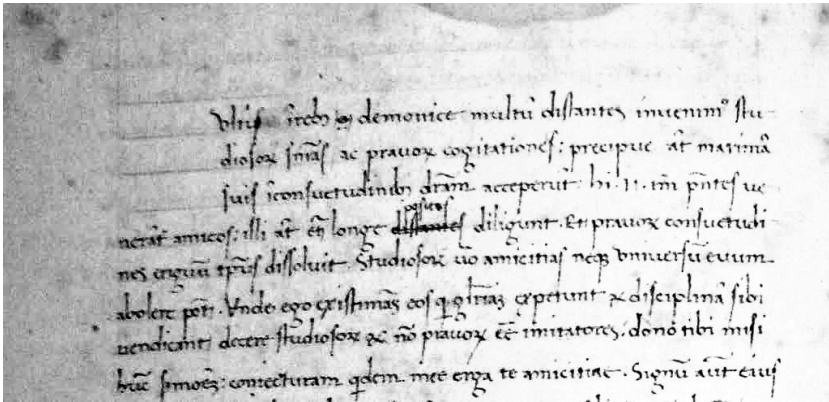 Vltis ĩ reb9 o demonice multũ distantes inuenim9 stu
diosoꝝ sñias ac prauoꝝ cogitationes: precipue aũt maximã
suis ĩ consuetudinib9 dr̃am acceperũt. hi .n. im̃ p̃ntes ue
nerãt amicos: illi aũt et̃ longe positos diligunt. Et prauoꝝ consuetudi
nes exiguũ tp̃us dissoluit. Studiosoꝝ ũo amicitias neqꝫ vniuersũ euum
abolere põt. Vnde ego existimãs eos q̃ gl̃iaꝫ expetunt & disciplinã sibi
uendicant decere studiosoꝝ & nõ prauoꝝ eẽ imitatores. donõ tibi misi
hũc s̃moeꝫ: coniecturam q̃dem mee erga te amicitiae. Signũ aũt eius